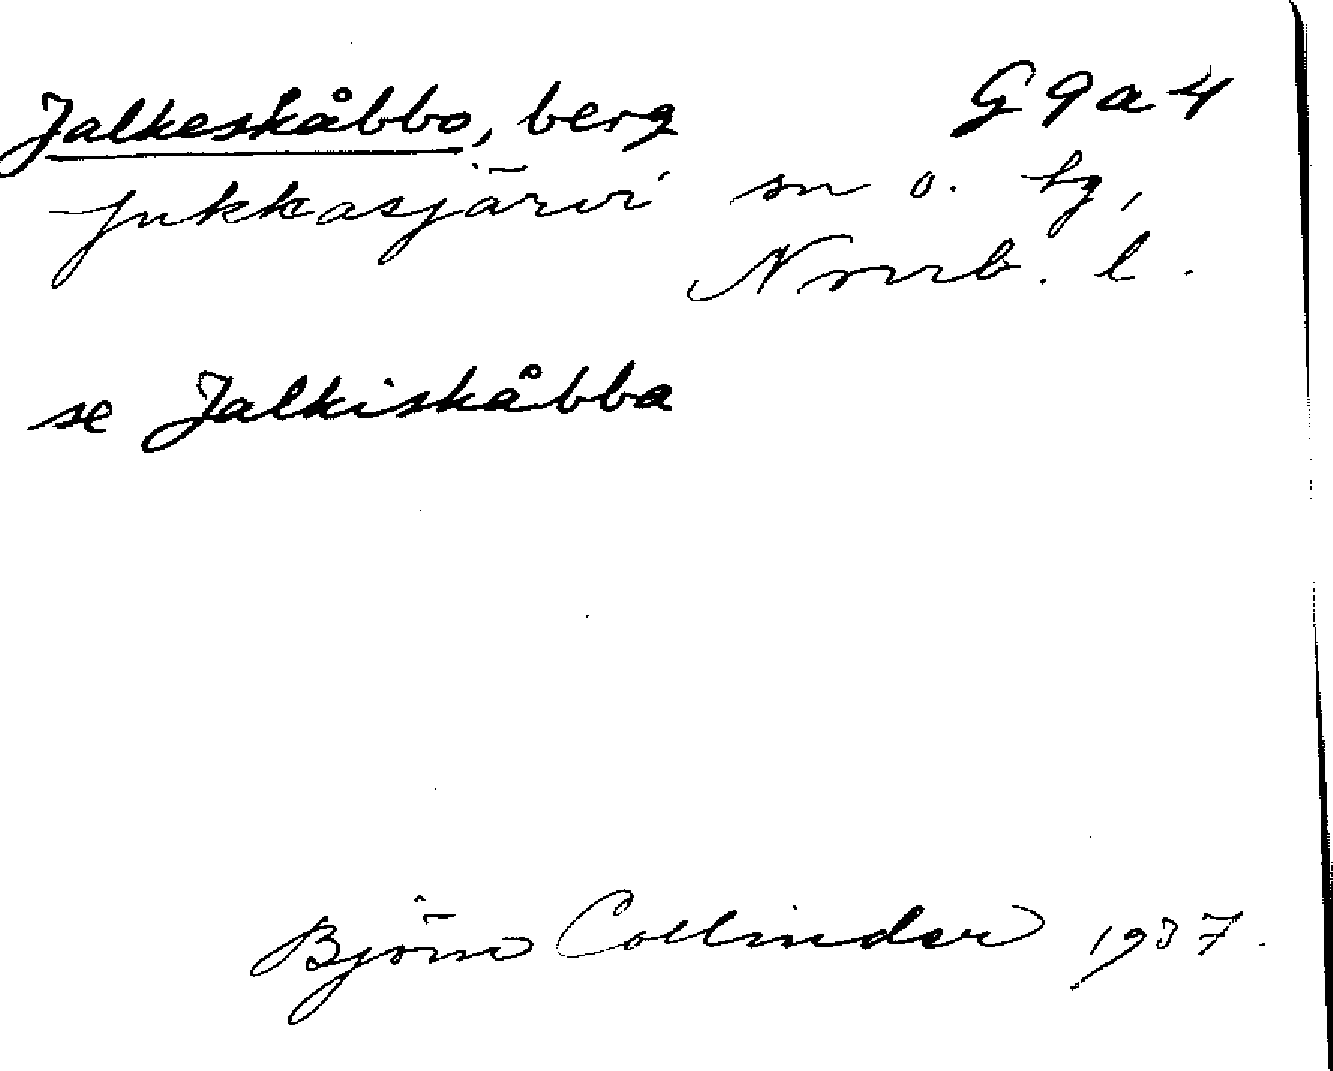 Jalkeskåbbo, berg G 9 a 4
Jukkasjärvi sn o. tg,
Norrb. l.
se Jalkiskåbba
Björn Collinder 1937.